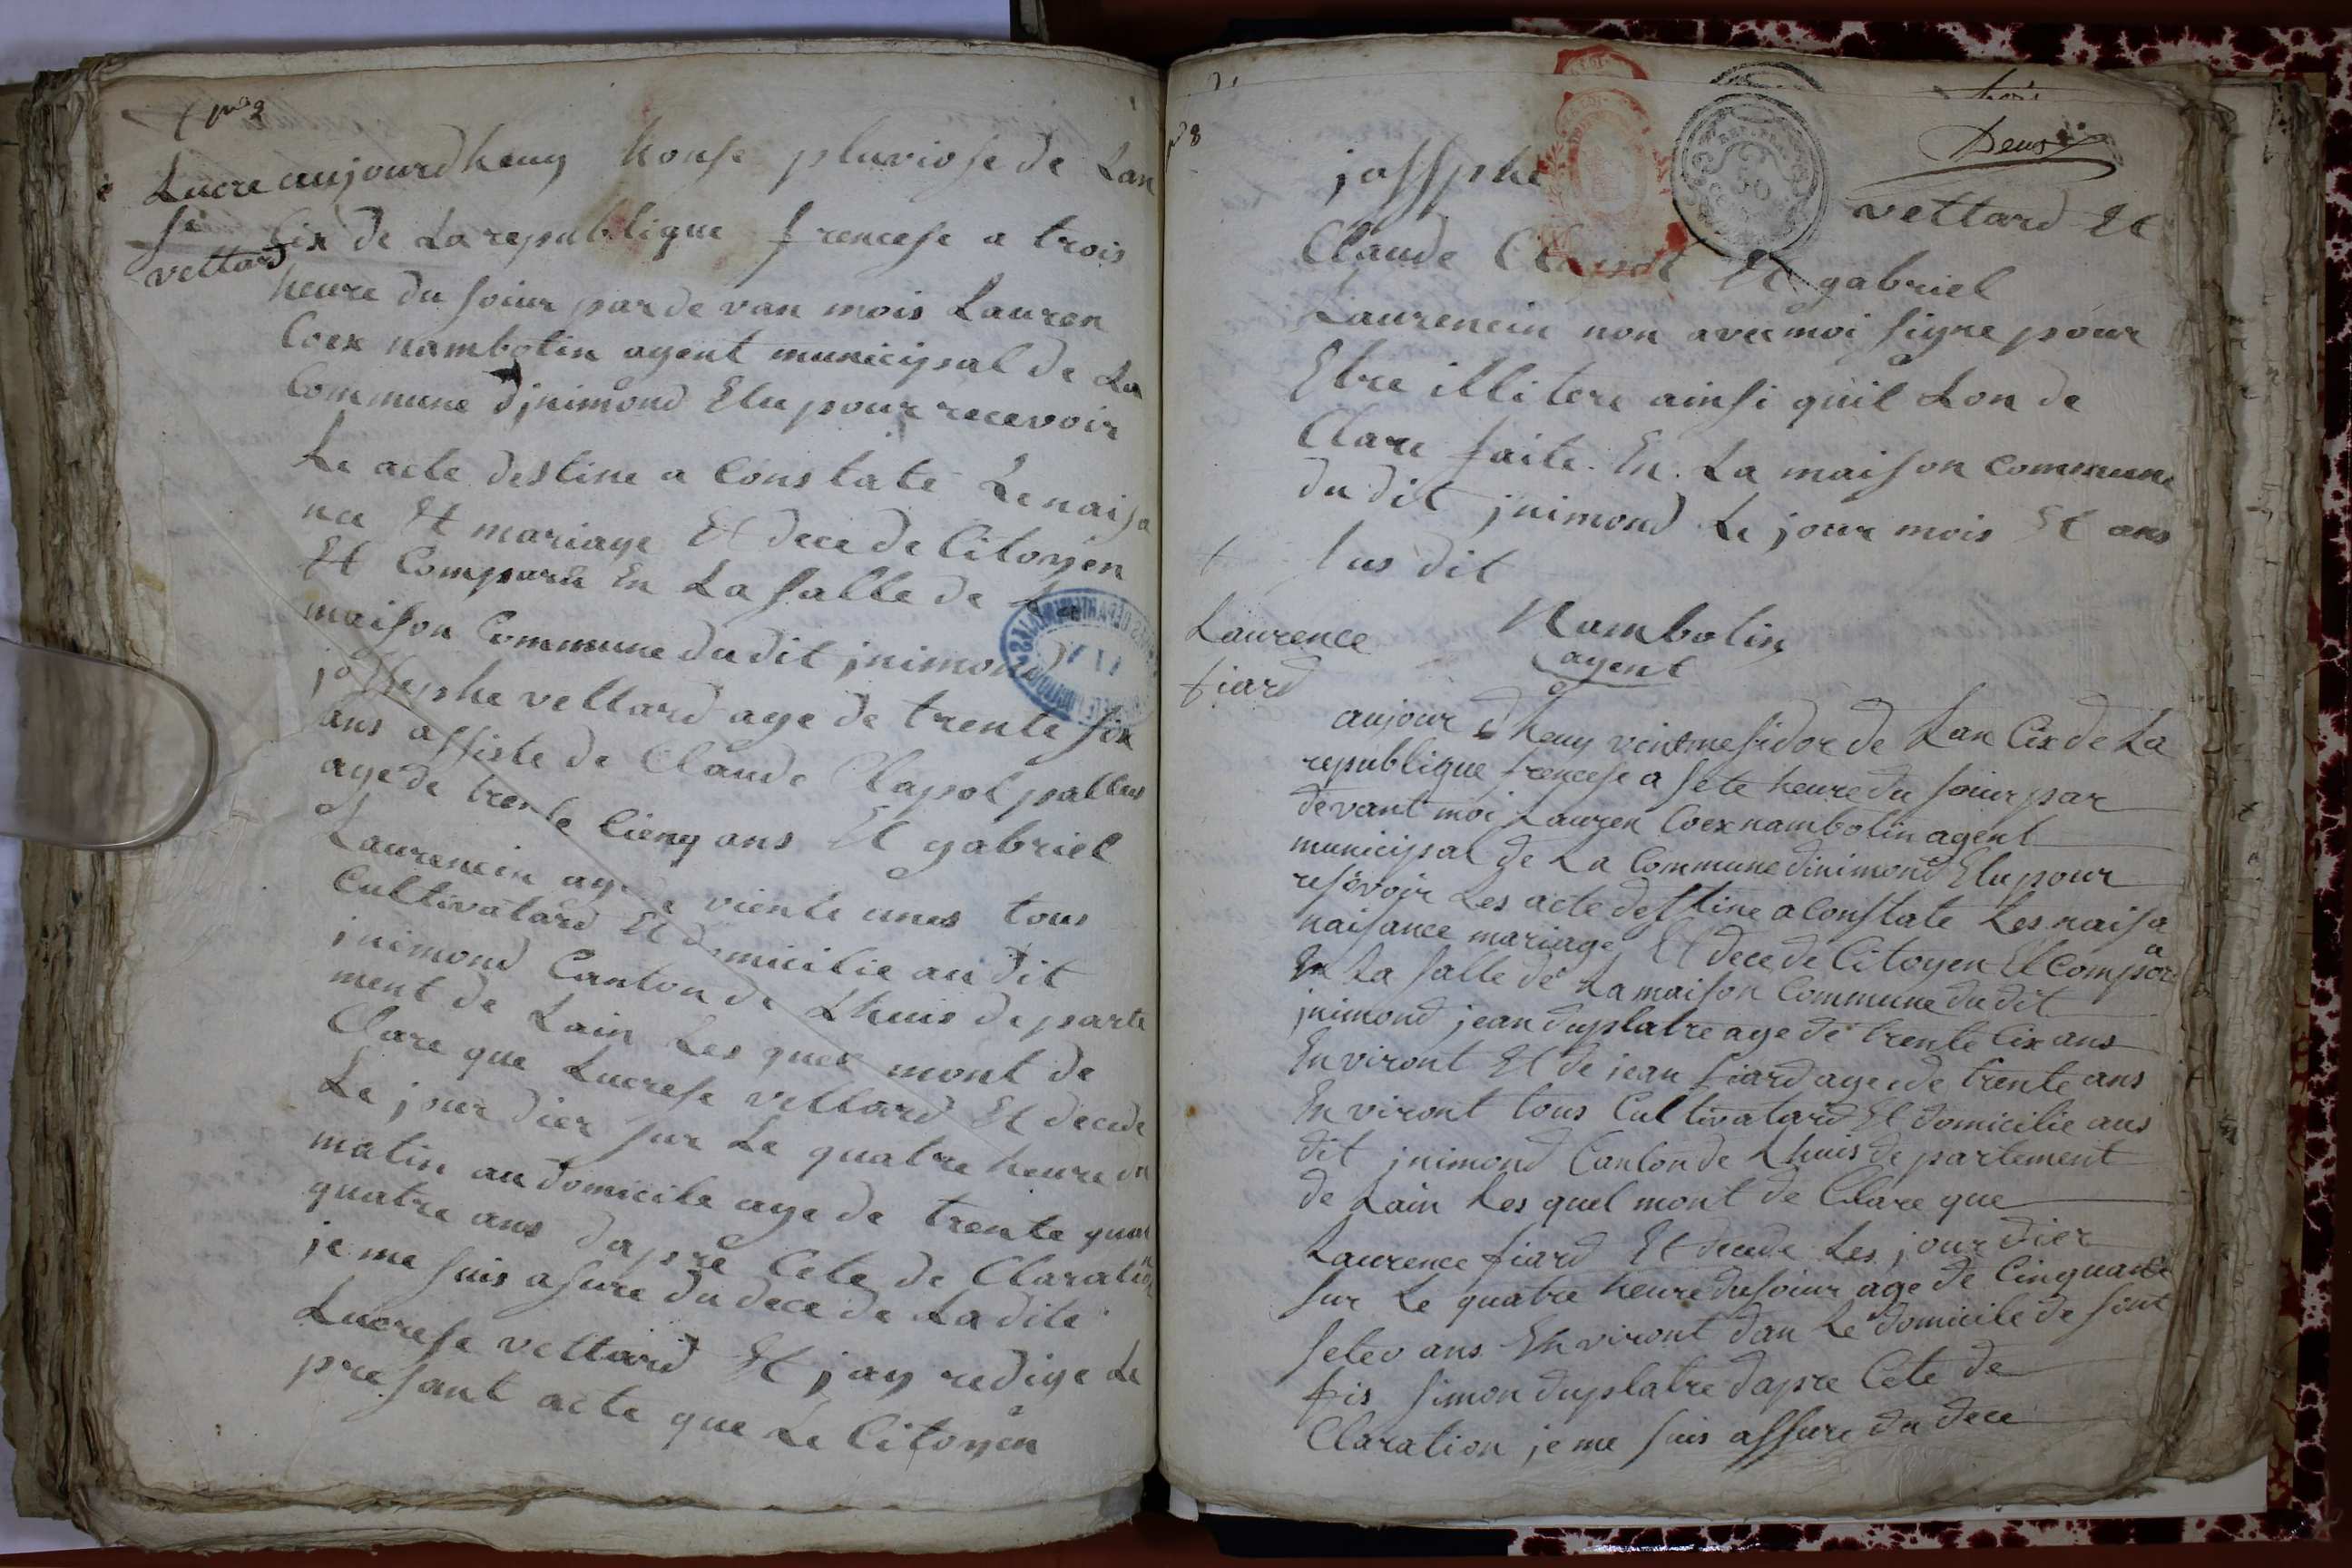 Lucre
se
vettard
aujourdheuy honse pluviose de Lan
Cix de La republique frencese a trois
heure du soiur par de van mois Lauren
Coex nambotin agent municipal de La
Commune djnimond Elu pour recevoir
Le acte destine a Constate Le naisa
nce Et mariage Et dece de Citoyen
Et Comparu En La salle de La
maison Commune du dit jnimond
josephe vettard age de trente six
ans assiste de Claude Clapot
age de trente Cienq ans Et gabriel
Laurencin age de viente unes tous
Cultivatard Et domicilie au dit
jnimond Canton de Lhuis departe
ment de Lain Les quel mont de
Clare que Lucrese vettard Et decede
Le jour dier sur Le quatre heure du
matin au domicile age de trente quat
quatre ans dapre Cete de Claration
je me suis asure du dece de La dite
Lucrese vettard Et jay redige Le
presant acte que Le Citoyen
n° 8
trois
Deux
50
jossphe vettard Et
Claude Clapot Et gabriel
Laurencin non avec moi signe pour
Etre illitere ainsi quil Lon de
Clare faite En La maison Commune
du dit jnimond Le jour mois Et ans
sus dit
Nambotin
agent
Laurence
fiard
aujour dheuy vint mesidor de Lan Cix de La
republique frencese a sete heure du soiur par
devant moi Lauren Coex nambotin agent
municipal de La Commune dinimond Elu pour
resevoir Les acte destine a Constate Les naisa
naisance mariage Et dece de Citoyen Et Compara
En La salle de La maison Commune du dit
jnimond jean duplatre age de trente Cix ans
Environt Et de jean fiard age de trente ans
Environt tous Cultivatard Et domicilie aus
dit jnimond Canton de Lhuis departement
de Lain Les quel mont de Clare que
Laurence fiard Et decede Les jour dier
sur Le quatre heure du soiur age de Cinquante
sete ans Environt dan Le domicile de sont
fis simon duplatre dapre Cete de
Claration je me suis assure du dece